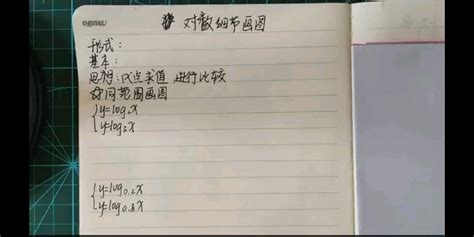 对数细节画图
形式：
基本：
思想：代点求值 进行比较
不同范围画图
y=log₂x
y=log₃x
y=log₀.₂x
y=log₀.₈x